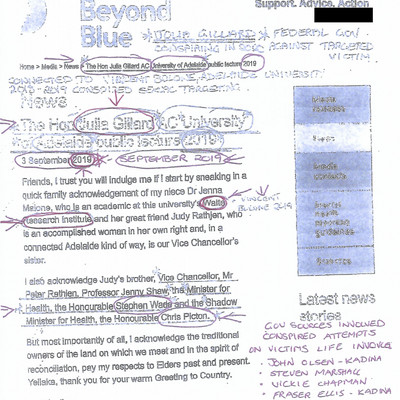 Beyond
Blue
Support. Advice. Action
* JULIA GILLARD * FEDERAL GOV
CONSPIRING IN SOCC AGAINST TARGETED
VICTIM.
Home > Media > News > The Hon Julia Gillard AC University of Adelaide public lecture 2019
CONNECTED TO VINCENT ADELAIDE UNIVERSITY
2019 CONSPIRED TARGETING
News
The Hon Julia Gillard AC University
of Adelaide public lecture 2019
3 September 2019 * SEPTEMBER 2019 *
Friends, I trust you will indulge me if I start by sneaking in a
quick family acknowledgement of my niece Dr Jenna
Malone, who is an academic at this university's Waite
Research Institute and her great friend Judy Rathjen, who
is an accomplished woman in her own right and, in a
connected Adelaide kind of way, is our Vice Chancellor's
sister.
VINCENT
2019
I also acknowledge Judy's brother, Vice Chancellor, Mr
Peter Rathjen, Professor Jenny Shaw, the Minister for
Health, the Honourable Stephen Wade and the Shadow
Minister for Health, the Honourable Chris Picton.
But most importantly of all, I acknowledge the traditional
owners of the land on which we meet and in the spirit of
reconciliation, pay my respects to Elders past and present.
Yellaka, thank you for your warm Greeting to Country.
Media
Latest news
stories
GOV SOURCES INVOLVED
CONSPIRED ATTEMPTS
ON VICTIMS LIFE INVOLVE
• JOHN OLSEN - KADINA
• STEVEN MARSHALL
• VICKIE CHAPMAN
• FRASER ELLIS - KADINA